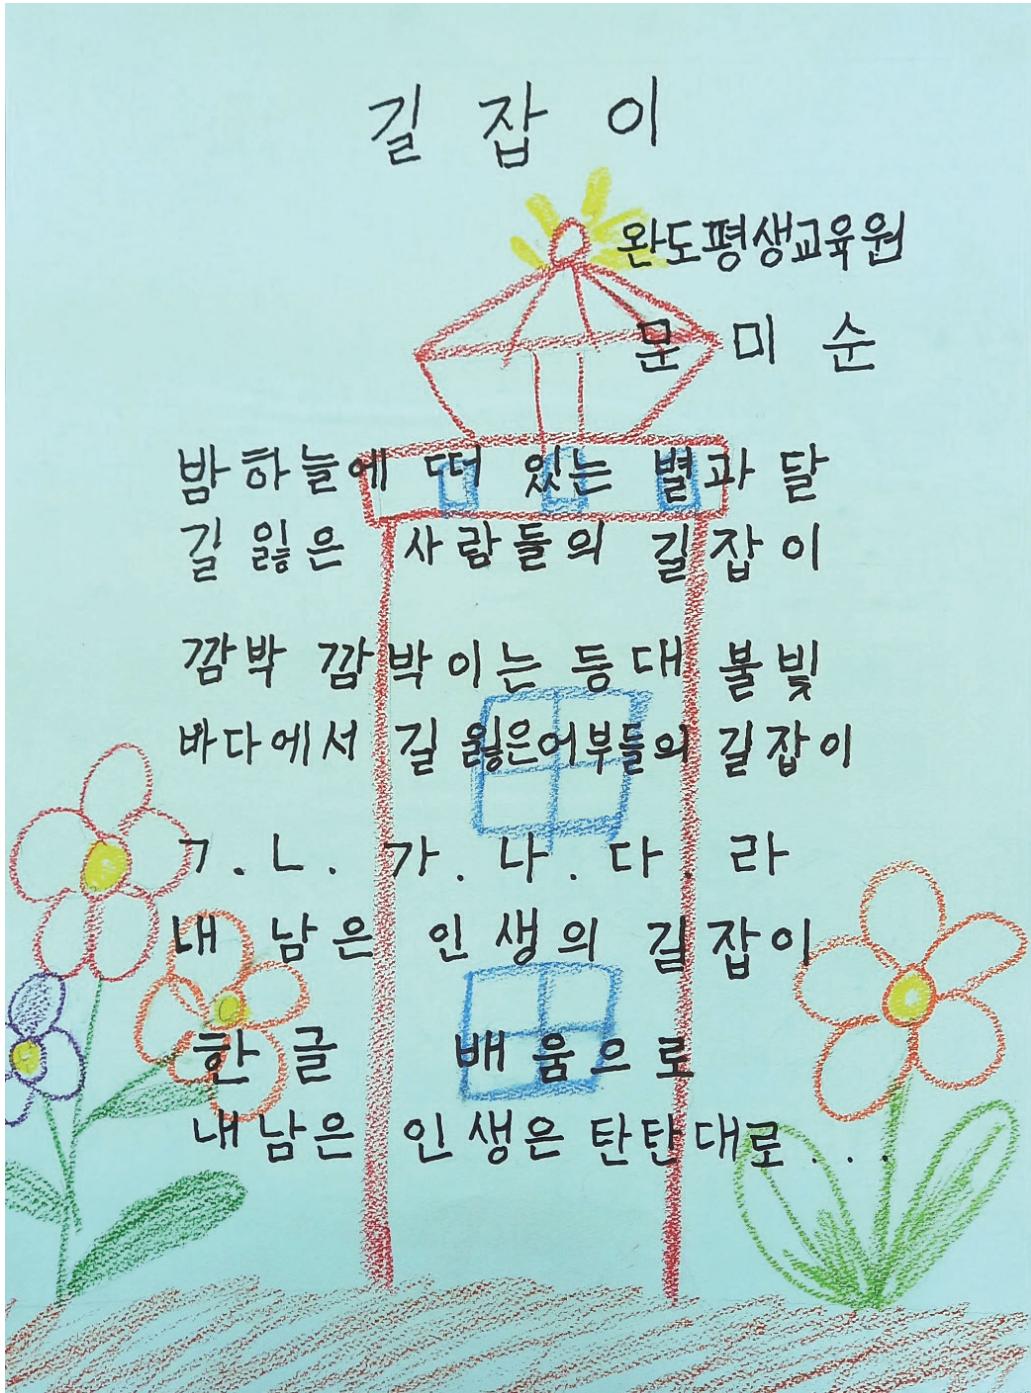 길 잡 이
완도평생교육원
문 미 순
밤하늘에 떠 있는 별과 달
길 잃은 사람들의 길잡이
깜박 깜박이는 등대 불빛
바다에서 길 잃은어부들의 길잡이
ㄱ.ㄴ. 가. 나. 다. 라
내 남은 인생의 길잡이
한글 배움으로
내남은 인생은 탄탄대로...